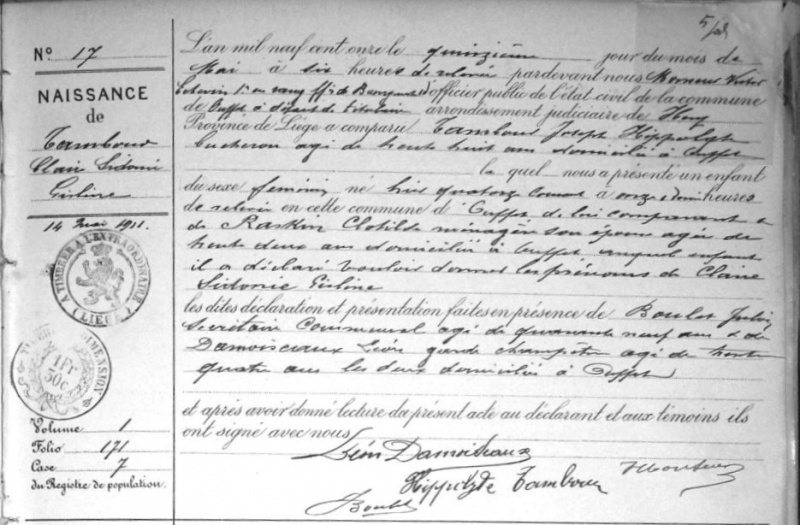 Nº 17
NAISSANCE
de
Tambour
Claire Sidonie
Gisline
14 Mai 1911.
A TIMBRER A L'EXTRAORDINAIRE
( LIÉGE )
DIMENSION
1 Fr
50c
Volume 1
Folio 171
Case 7
du Registre de population.
L'an mil neuf cent onze le quinzième jour du mois de
Mai à six heures de relevée pardevant nous Monseur Victor
Echevin officier public de l'état civil de la commune
de Ouffet à défaut de titulaire arrondissement judiciaire de Huy
Province de Liège a comparu Tambour Joseph Hippolyte
bucheron agé de trente huit ans domicilié à Ouffet
la quel nous a présenté un enfant
du sexe féminin né hier quatorze courant à onze heures
de relevée en cette commune d'Ouffet de lui comparant et
de Raskin Clotilde ménagère son épouse agée de
trente deux ans domiciliée à Ouffet auquel enfant
il a déclaré vouloir donner les prénoms de Claire
Sidonie Gisline
les dites déclaration et présentation faites en présence de Boulet
Secrétaire Communal agé de quarante neuf ans et de
Damoiseaux Léon garde champêtre agé de trente
quatre ans les deux domiciliés à Ouffet
et après avoir donné lecture du présent acte au déclarant et aux témoins ils
ont signé avec nous
Léon Damoiseaux
Hippolyte Tambour
Boulet